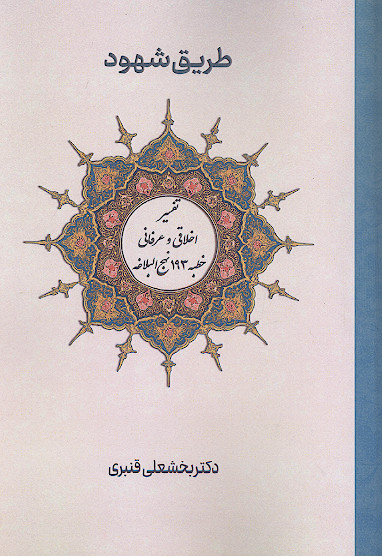 طریق شهود
تفسیر
اخلاقی و عرفانی
خطبه ۱۹۳ نهج البلاغه
دکتر بخشعلی قنبری